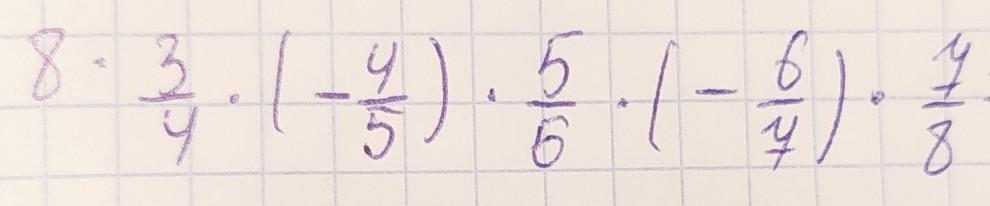 8 · 3/4 · (- 4/5) · 5/6 · (- 6/7) · 7/8